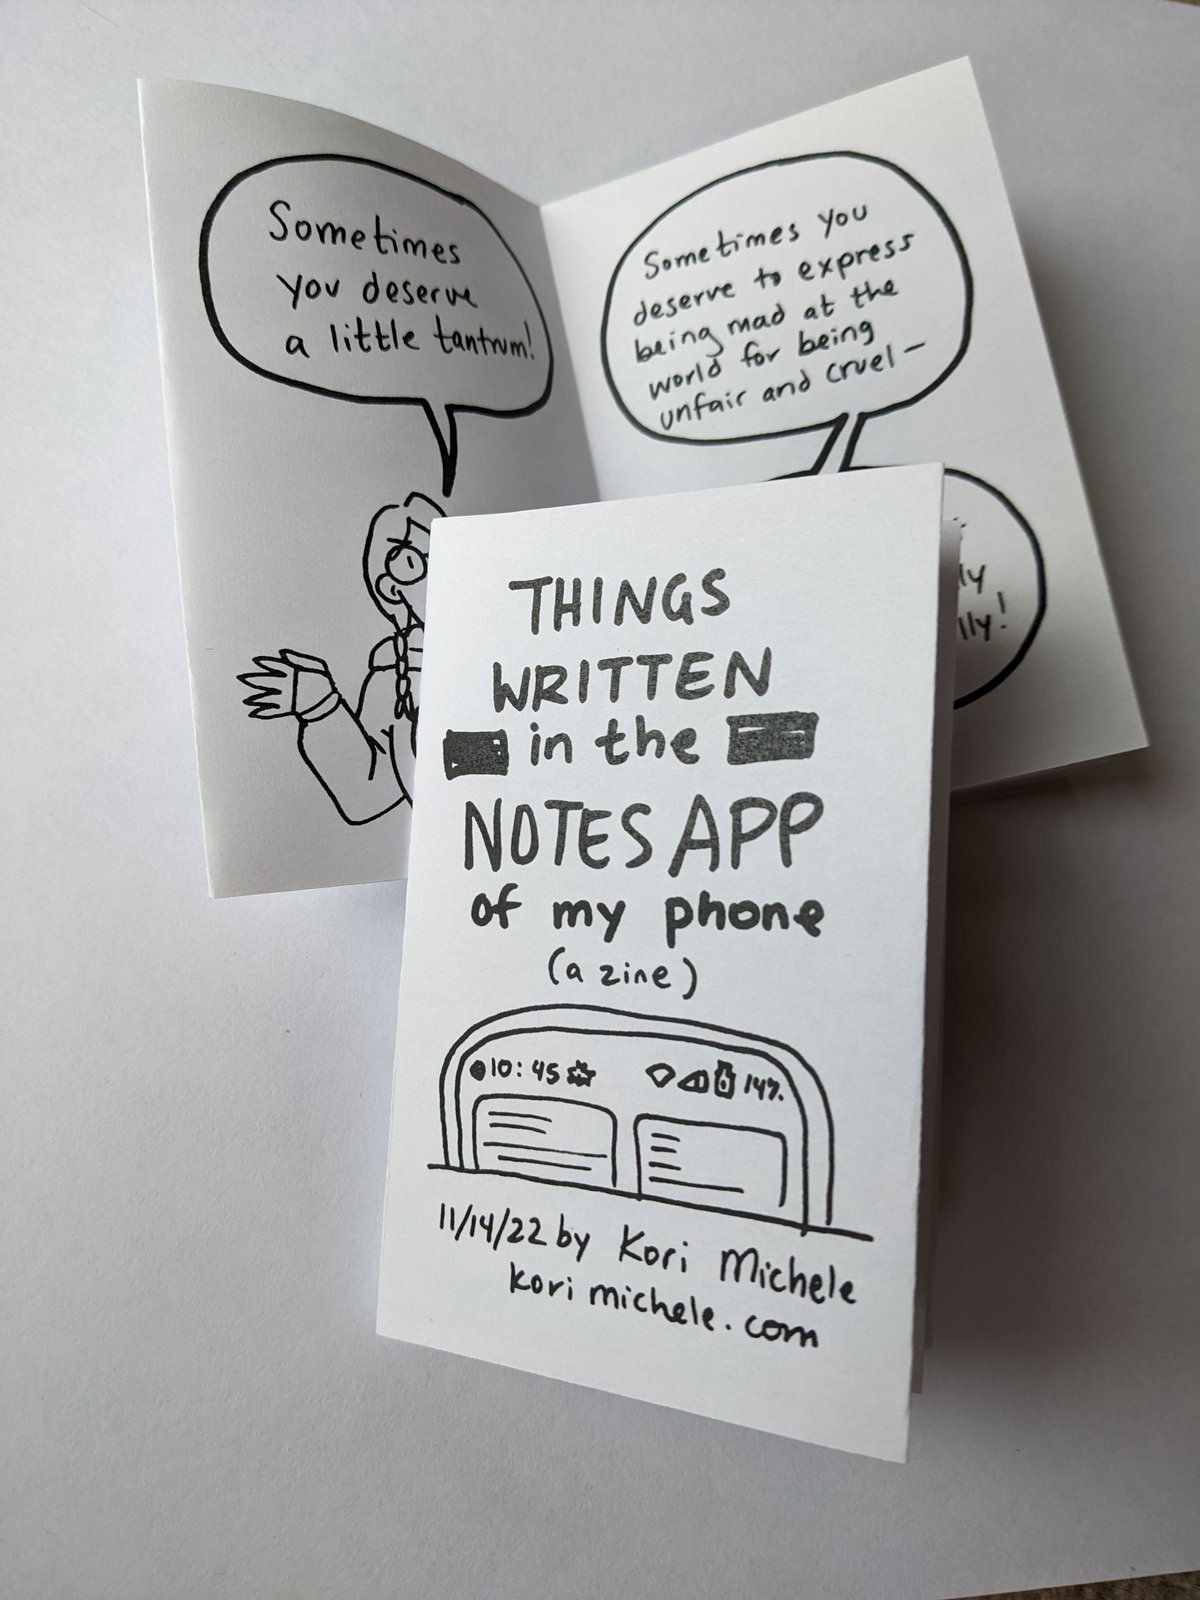 Sometimes
you deserve
a little tantrum!
Sometimes you
deserve to express
being mad at the
world for being
unfair and cruel—
THINGS
WRITTEN
in the
NOTES APP
of my phone
(a zine)
10:45
14%
11/14/22 by Kori Michele
korimichele.com